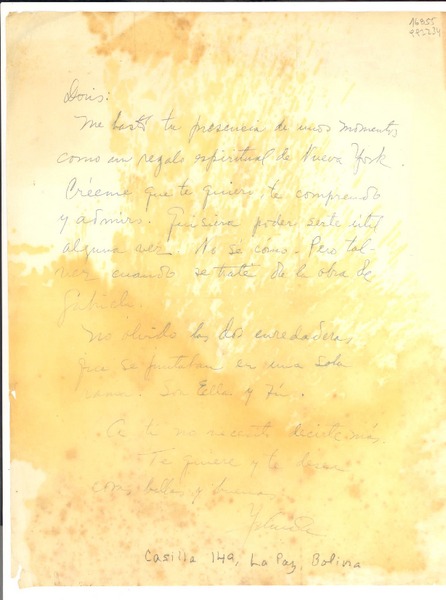 16855
Doris:
Me bastó tu presencia de unos momentos
como un regalo espiritual de Nueva York.
Créeme que te quiero, te comprendo
y admiro. Quisiera poder serte útil
alguna vez. No se cómo. Pero tal
vez cuando se trate de la obra de
Gabriela.
No olvido las dos enredaderas
que se juntaban en una sola
rama. Son Ella y Tú.
A ti no necesito decirte más.
Te quiere y te
cosas bellas y buenas
Yolanda
Casilla 149, La Paz, Bolivia